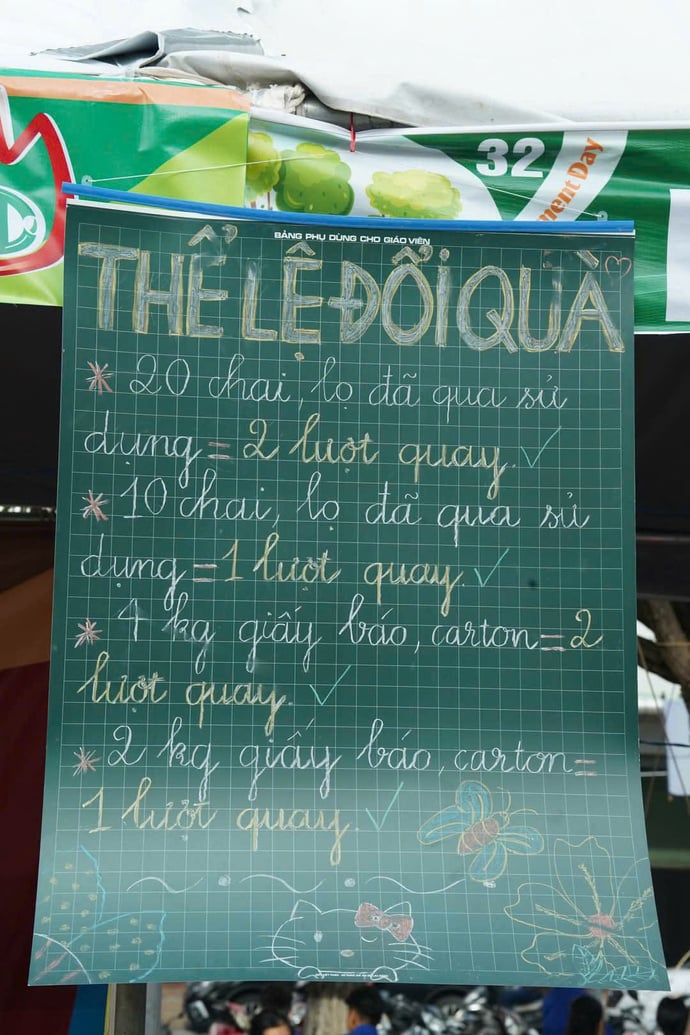 32
ment Day
BẢNG PHỤ DÙNG CHO GIÁO VIÊN
THỂ LỆ ĐỔI QUÀ
* 20 chai, lọ đã qua sử
dụng = 2 lượt quay. ✓
* 10 chai, lọ đã qua sử
dụng = 1 lượt quay. ✓
* 4 kg giấy báo, carton = 2
lượt quay. ✓
* 2 kg giấy báo, carton =
1 lượt quay. ✓